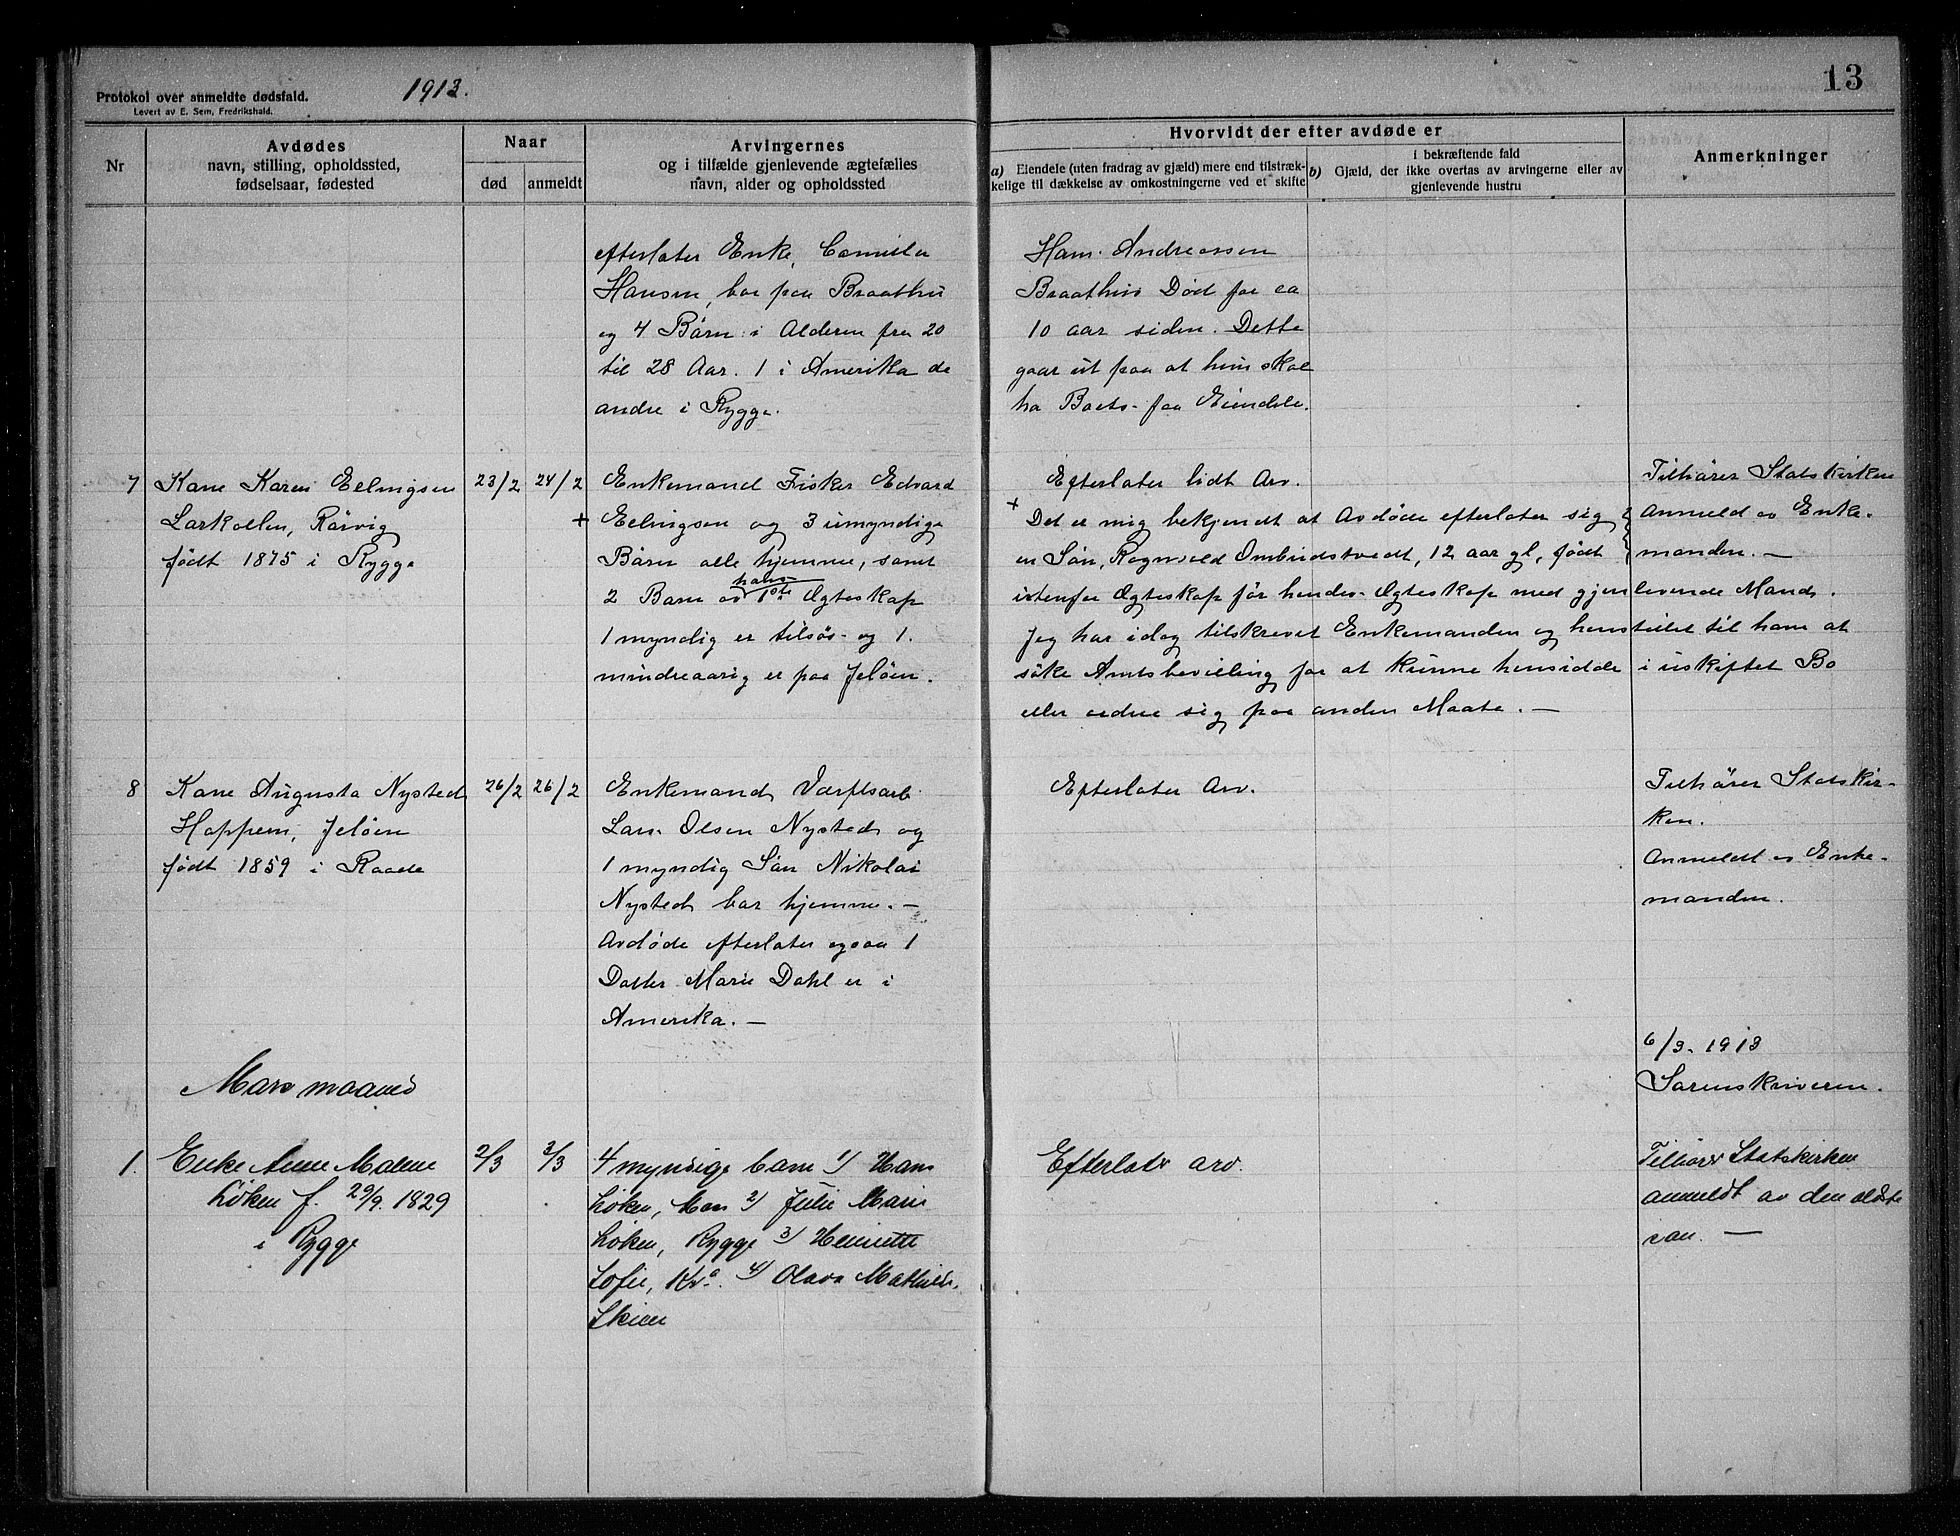 Protokol over anmeldte dødsfald.
Levert av E. Sem, Fredrikshald.
1913.
13
Nr
Avdødes
navn, stilling, opholdssted,
fødselsaar, fødested
Naar
død
anmeldt
Arvingernes
og i tilfælde gjenlevende ægtefælles
navn, alder og opholdssted
Hvorvidt der efter avdøde er
a) Eiendele (uten fradrag av gjæld) mere end tilstræk-
kelige til dækkelse av omkostningerne ved et skifte
i bekræftende fald
b) Gjæld, der ikke overtas av arvingerne eller av
gjenlevende hustru
Anmerkninger
efterlater Enke, Camilla
Hansen, bor paa Braathen
og 4 Børn i Alderen fra 20
til 28 Aar. 1 i Amerika de
andre i Rygge.
Hans Andreassen
Braathen Død for ca
10 aar siden. Dette
gaar ut paa at hun skal
ha Boets Eiendele.
7
Kone Karen Ellingsen
Larkollen, Rörvig
födt 1875 i Rygge
23/2
24/2
Enkemand Fisker Edvard
+ Ellingsen og 3 umyndige
Børn alle hjemme, samt
2 Barn av hans 1ste Ægteskap
1 myndig er tilsøs og 1
mindreaarig er paa Jeløen.
Efterlater lidt Arv.
+ Det er mig bekjendt at Avdöde efterlater sig
en Søn, Ragnvald Ombudstvedt, 12 aar gl, födt
utenfor Ægteskap før hendes Ægteskap med gjenlevende Mand.
Jeg har idag tilskrevet Enkemanden og henstillet til ham at
söke Amtsbevilling for at kunne hensidde i uskiftet Bo
eller ordne sig paa anden Maate. —
Tilhører Statskirken
Anmeld av Enke-
manden. —
8
Kone Augusta Nysted
Hoppern, Jelöen
födt 1859 i Raade
26/2
26/2
Enkemand, Værftsarb.
Lars Olsen Nysted og
1 myndig Søn Nikolai
Nysted bor hjemme. —
Avdöde efterlater ogsaa 1
Datter Marie Dahl er i
Amerika. —
Efterlater Arv.
Tilhører Statskir-
ken.
Anmeldt av Enke-
manden.
6/3. 1913
Sorenskriveren.
Mars maaned
1.
Enke Anne Malene
Löken f. 29/9. 1829
i Rygge
2/3
3/3
4 myndige barn 1) Hans
Löken, Moss 2) Julie Marie
Löken, Rygge 3) Henriette
Sofie, Kra. 4) Olava Mathilde,
Skien
Efterlater arv.
Tilhører Statskirken
anmeldt av den ældste
søn. —